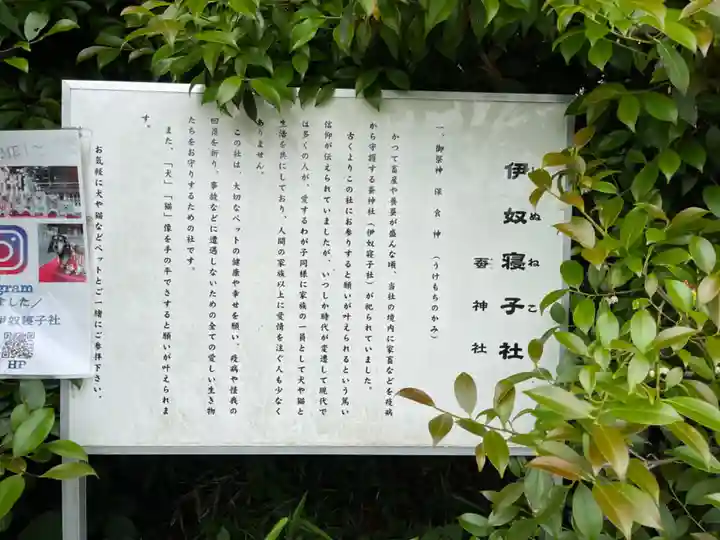 伊奴寝子社
いぬねこ
蚕神社
一、御祭神　保食神　（うけもちのかみ）
かつて畜産や養蚕が盛んな頃、当社の境内に家畜などを疫病
から守護する蚕神社（伊奴寝子社）が祀られていました。
古くよりこの社にお参りすると願いが叶えられるという篤い
信仰が伝えられていましたが、いつしか時代が変遷して現代で
は多くの人が、愛するわが子同様に家族の一員として犬や猫と
生活を共にしており、人間の家族以上に愛情を注ぐ人も少なく
ありません。
この社は、大切なペットの健康や幸せを願い、疫病や怪我の
回復を祈り、事故などに遭遇しないための全ての愛しい生き物
たちをお守りするための社です。
また、「犬」「猫」像を手の平でさすると願いが叶えられま
す。
お気軽に犬や猫などペットとご一緒にご参拝下さい。
gram
ました／
伊奴寝子社
HP